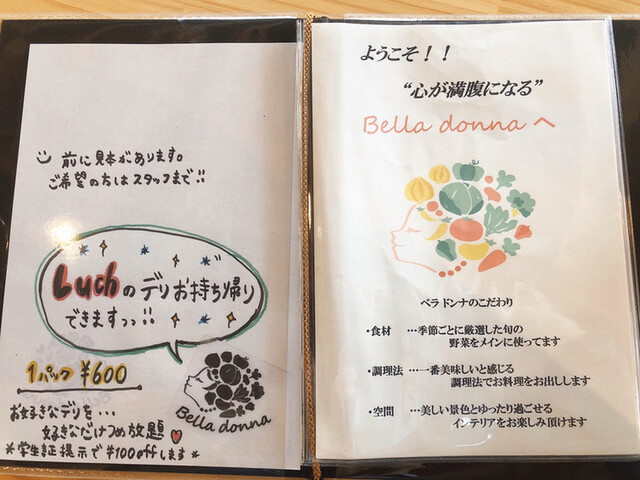 前に見本があります。
ご希望の方はスタッフまで!!
Luchのデリお持ち帰り
できますっっ!!
1パック ¥600
お好きなデリを・・・
好きなだけつめ放題
*学生証提示で¥100offします*
Bella donna
ようこそ！！
“心が満腹になる”
Bella donna へ
ベラ ドンナのこだわり
・食材 …季節ごとに厳選した旬の
野菜をメインに使ってます
・調理法 …一番美味しいと感じる
調理法でお料理をお出しします
・空間 …美しい景色とゆったり過ごせる
インテリアをお楽しみ頂けます